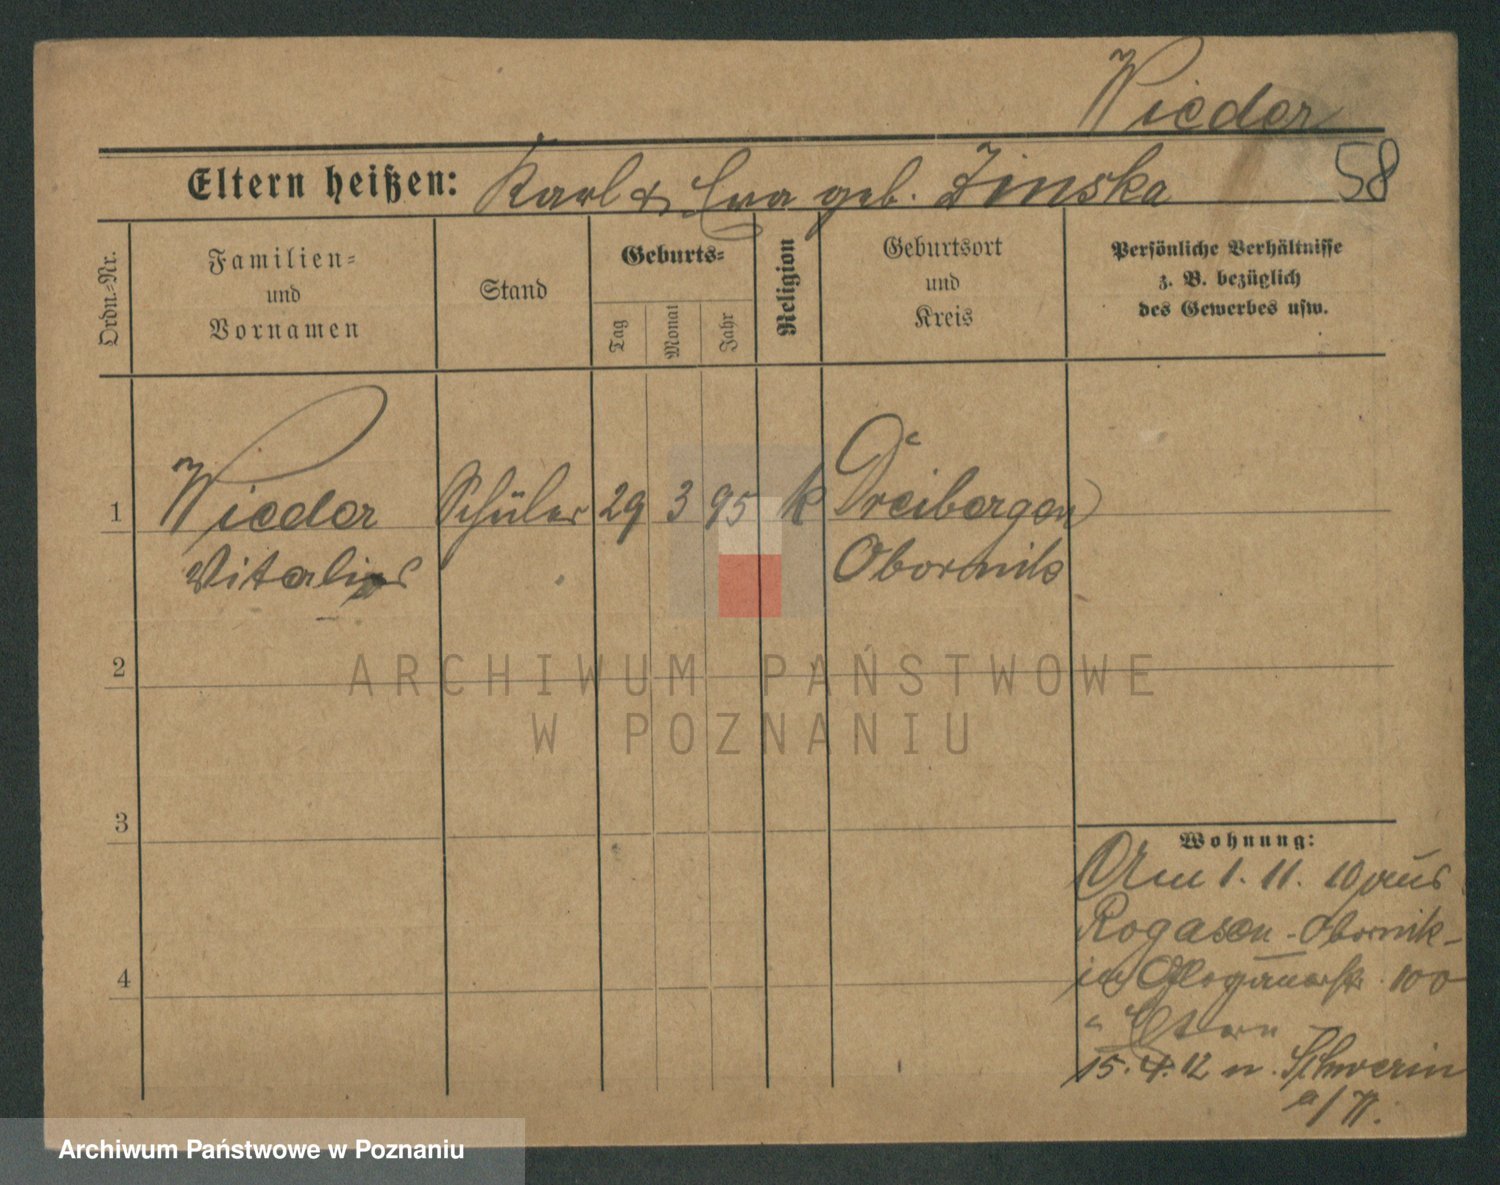 Wieder
58
Eltern heißen: Karl & Eva geb. Zinska
Ordn.-Nr.
Familien-
und
Vornamen
Stand
Geburts-
Tag
Monat
Jahr
Religion
Geburtsort
und
Kreis
Persönliche Verhältnisse
z. B. bezüglich
des Gewerbes usw.
1 Wieder Schüler 29 3 95 k Dreibergen
Vitalis Obornik
2
ARCHIWUM PAŃSTWOWE
W POZNANIU
3
Wohnung:
Am 1. 11. 10 aus
Rogasen - Obornik -
in Glogauerstr. 100
Eltern
4
15. 4. 12 n. Schwerin
a/W.
Archiwum Państwowe w Poznaniu